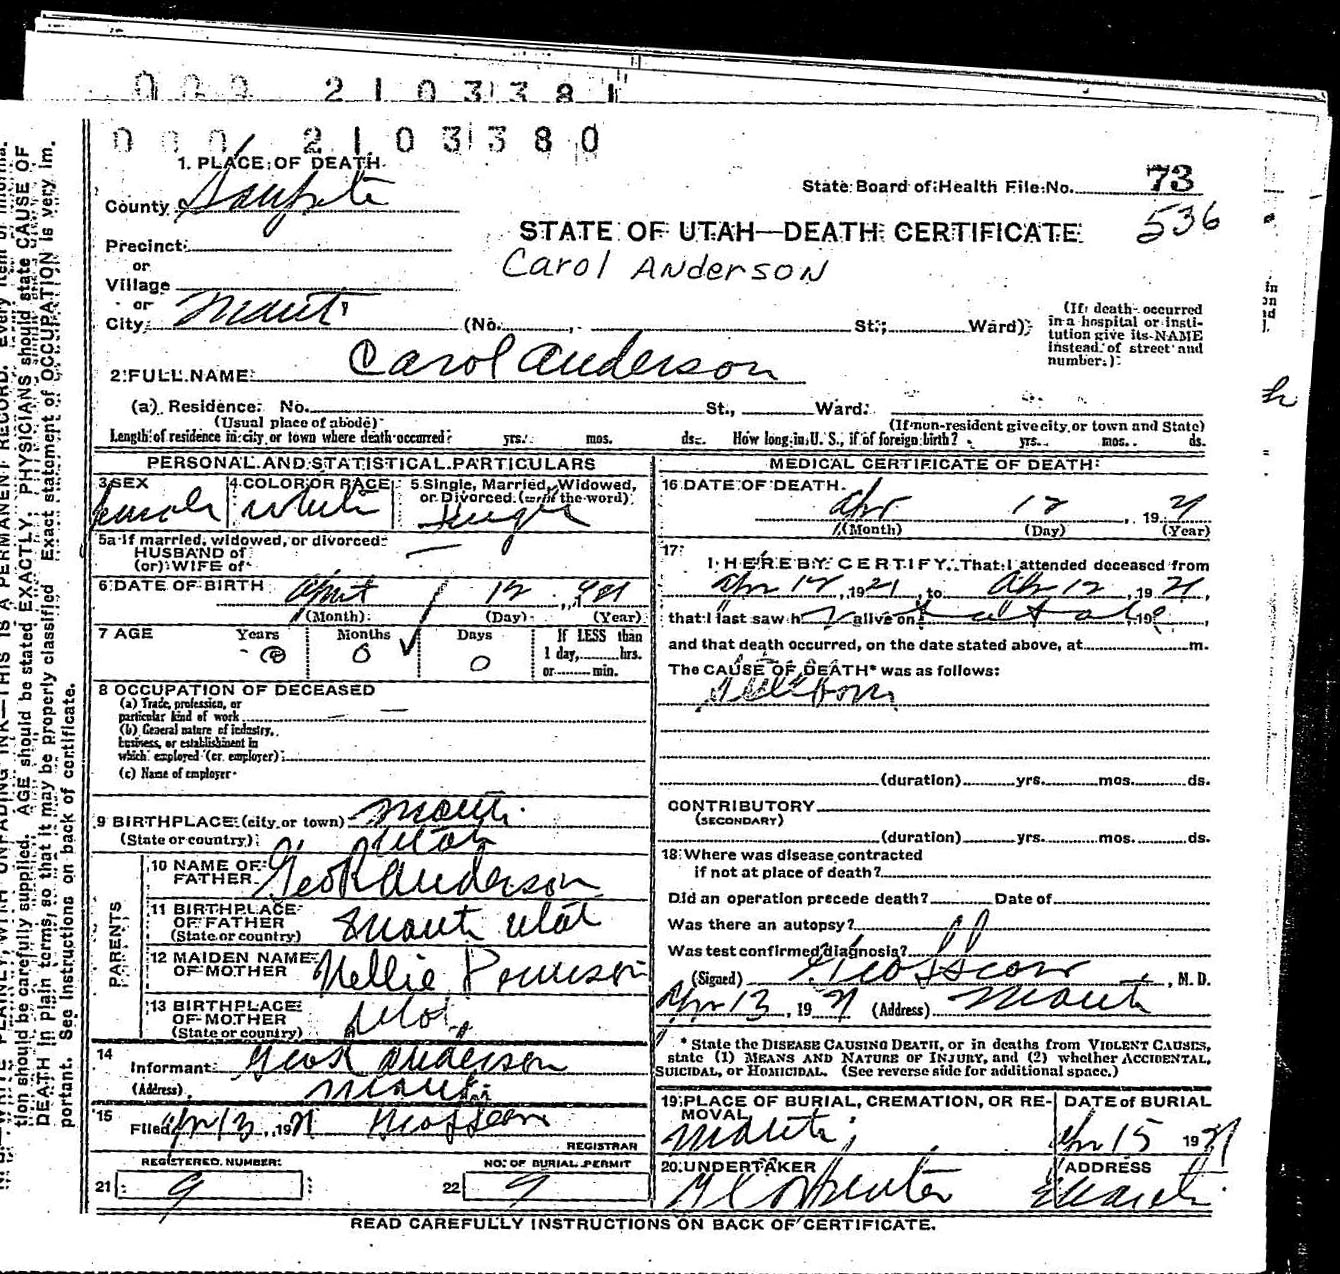 0 0 0 2 1 0 3 3 8 1
0 0 0 2 1 0 3 3 8 0
1. PLACE OF DEATH
County Sanpete
State Board of Health File No. 73
536
STATE OF UTAH—DEATH CERTIFICATE
Precinct
or
Carol Anderson
Village
or
City Manti (No. St.; Ward)
(If death occurred in a hospital or institution give its NAME instead of street and number.)
2 FULL NAME Carol Anderson
(a) Residence: No. St., Ward.
(Usual place of abode) (If non-resident give city or town and State)
Length of residence in city or town where death occurred? yrs. mos. ds. How long in U. S., if of foreign birth? yrs. mos. ds.
PERSONAL AND STATISTICAL PARTICULARS
3 SEX female
4 COLOR OR RACE white
5 Single, Married, Widowed, or Divorced (write the word) Single
5a If married, widowed, or divorced
HUSBAND of
(or) WIFE of
6 DATE OF BIRTH April 12, 1921
(Month) (Day) (Year)
7 AGE Years 0 Months 0 Days 0
If LESS than
1 day, hrs.
or min.
8 OCCUPATION OF DECEASED
(a) Trade, profession, or
particular kind of work
(b) General nature of industry,
business, or establishment in
which employed (or employer)
(c) Name of employer
9 BIRTHPLACE (city or town) Manti
(State or country) Utah
PARENTS
10 NAME OF FATHER Geo R Anderson
11 BIRTHPLACE OF FATHER Manti Utah
(State or country)
12 MAIDEN NAME OF MOTHER Nellie
13 BIRTHPLACE OF MOTHER Utah
(State or country)
14
Informant Geo R Anderson
(Address) Manti
15
Filed Apr 13, 1921
REGISTRAR
REGISTERED NUMBER
21 9
NO. OF BURIAL PERMIT
22 9
MEDICAL CERTIFICATE OF DEATH
16 DATE OF DEATH
Apr 12, 1921
(Month) (Day) (Year)
17
I HEREBY CERTIFY, That I attended deceased from
Apr 12, 1921, to Apr 12, 1921,
that I last saw h alive on , 19 ,
and that death occurred, on the date stated above, at m.
The CAUSE OF DEATH* was as follows:
Stillborn
(duration) yrs. mos. ds.
CONTRIBUTORY
(SECONDARY)
(duration) yrs. mos. ds.
18 Where was disease contracted
if not at place of death?
Did an operation precede death? Date of
Was there an autopsy?
Was test confirmed diagnosis?
(Signed) , M. D.
Apr 13, 1921 (Address) Manti
* State the DISEASE CAUSING DEATH, or in deaths from VIOLENT CAUSES,
state (1) MEANS AND NATURE OF INJURY, and (2) whether ACCIDENTAL,
SUICIDAL, or HOMICIDAL. (See reverse side for additional space.)
19 PLACE OF BURIAL, CREMATION, OR REMOVAL
Manti
DATE of BURIAL
Apr 15 1921
20 UNDERTAKER
ADDRESS
Manti
READ CAREFULLY INSTRUCTIONS ON BACK OF CERTIFICATE.
tion should be carefully supplied. AGE should be stated EXACTLY. PHYSICIANS should state CAUSE OF
DEATH in plain terms, so that it may be properly classified. Exact statement of OCCUPATION is very im-
portant. See instructions on back of certificate.